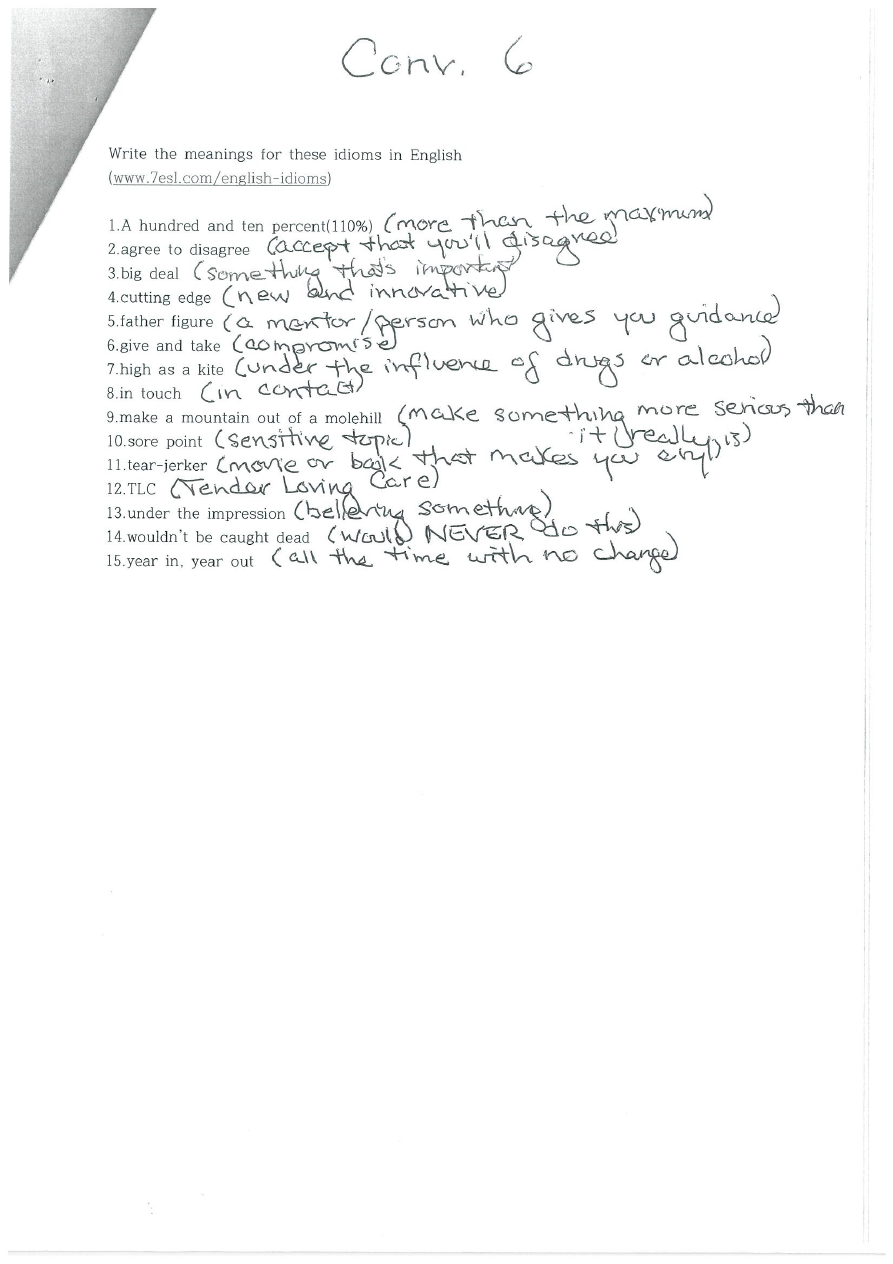 Conv. 6
Write the meanings for these idioms in English
(www.7esl.com/english-idioms)
1.A hundred and ten percent(110%) (more than the maximum)
2.agree to disagree (accept that you'll disagree
3.big deal (something that's important)
4.cutting edge (new and innovative)
5.father figure (a mentor/person who gives you guidance)
6.give and take (compromise)
7.high as a kite (under the influence of drugs or alcohol)
8.in touch (in contact)
9.make a mountain out of a molehill (make something more serious than
it really is)
10.sore point (sensitive topic)
11.tear-jerker (movie or book that makes you cry)
12.TLC (Tender Loving Care)
13.under the impression (believing something)
14.wouldn't be caught dead (would NEVER do this)
15.year in, year out (all the time with no change)